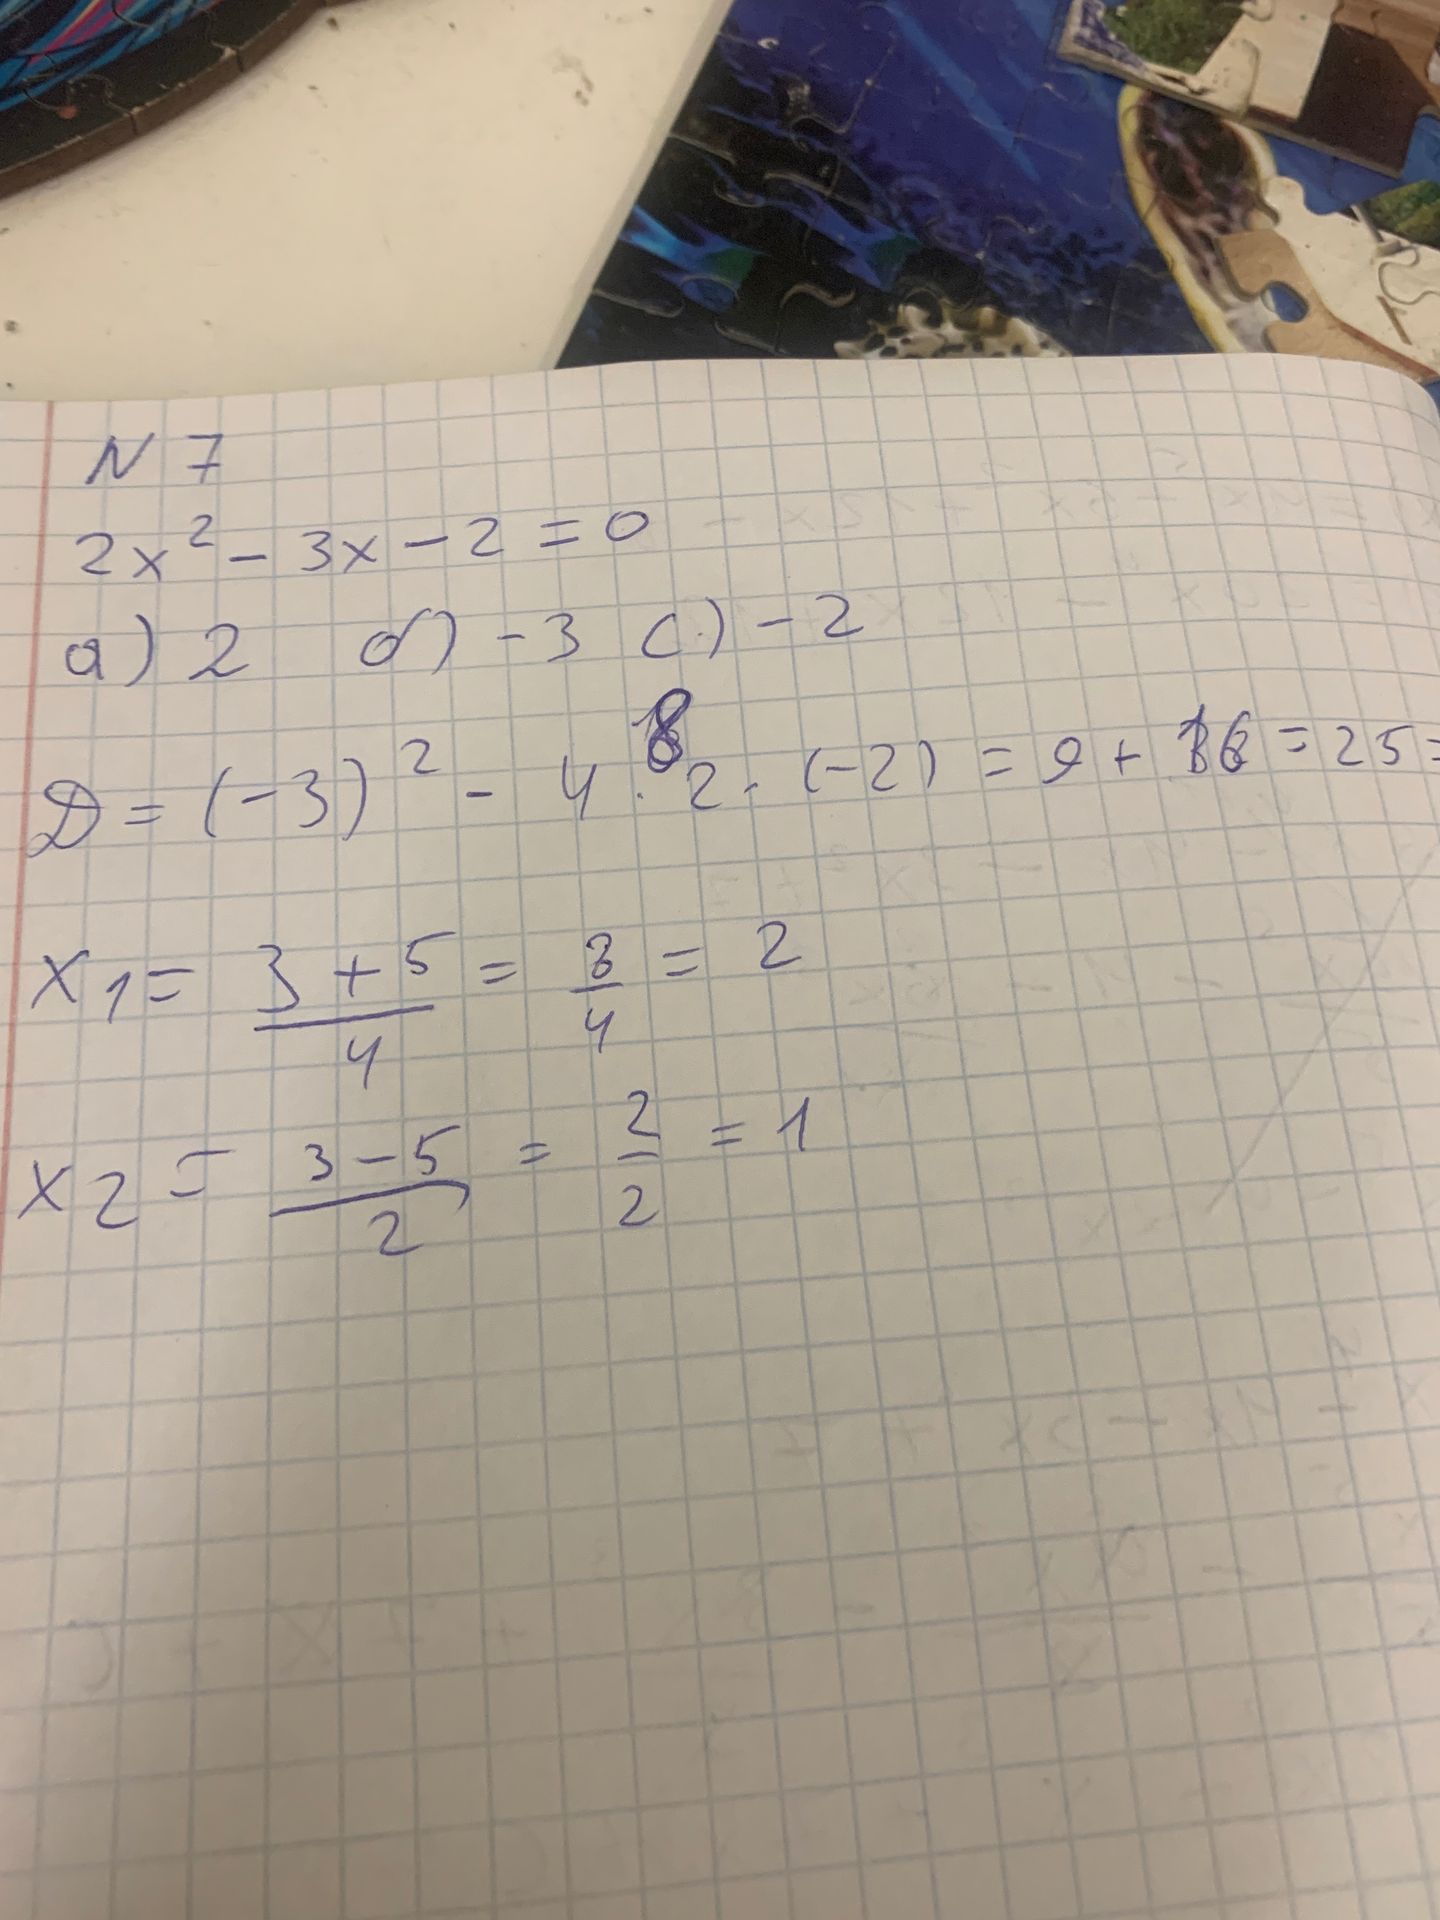 N 7
2x² - 3x - 2 = 0
а) 2 б) -3 с) -2
D = (-3)² - 4 · 2 · (-2) = 9 + 16 = 25 =
x1 = 3 + 5 / 4 = 8 / 4 = 2
x2 = 3 - 5 / 2 = 2 / 2 = 1